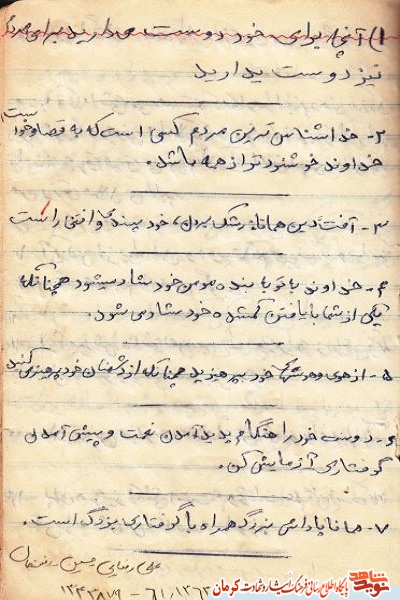 ۱) آنچه برای خود دوست می دارید برای مردم
نیز دوست بدارید
۲- خداشناس ترین مردم کسی است که به قضا و خواست
خداوند خوشنودتر از همه باشد.
۳- آفت دین همانا رشک بردن، خود بینی و
۴- خداوند با توبه بنده مومن خود شاد میشود همچنانکه
یکی از شما با یافتن گمشده خود شاد می شود.
۵- از هوی و هوسهای خود بپرهیزید همچنانکه از دشمنان خود پرهیز می کنید
۶- دوست خود را هنگام پدید آمدن نعمت و پیش آمدن
گرفتاری آزمایش کن.
۷- همانا پاداش بزرگ همراه با گرفتاری بزرگ است.
علی رضایی حسین
نوید شاهد
پایگاه اطلاع رسانی فرهنگ ایثار و شهادت کرمان